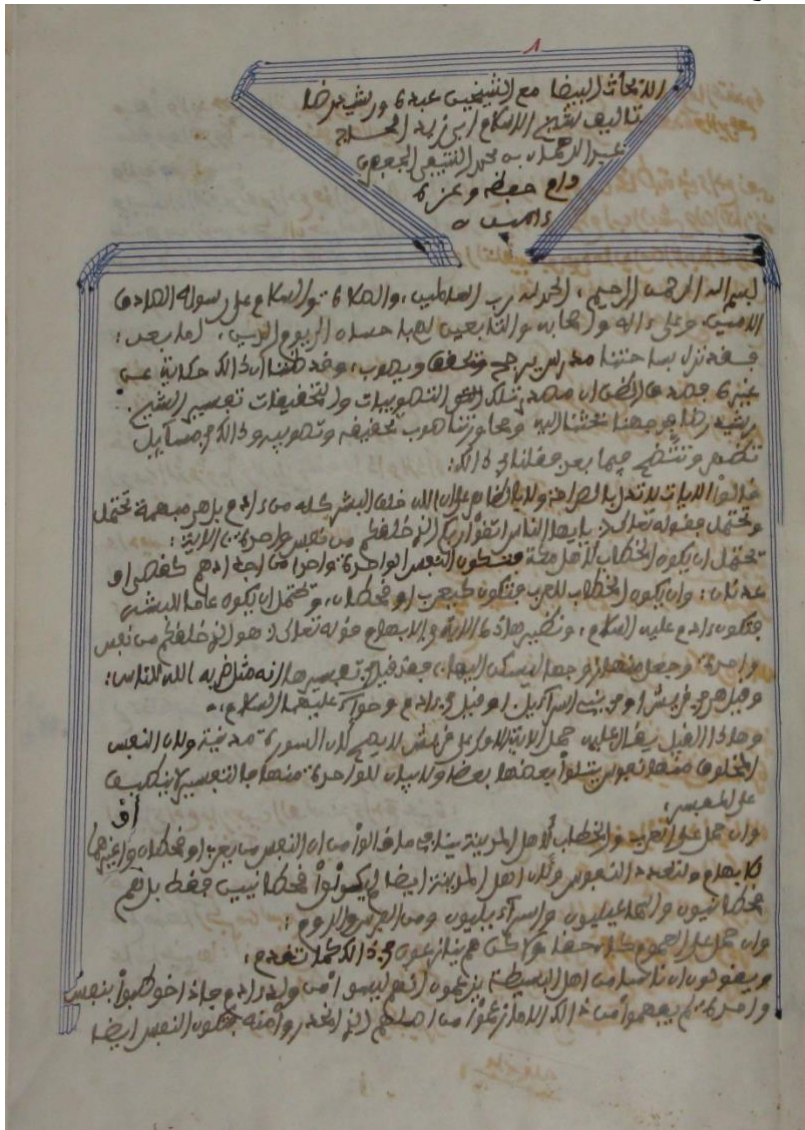 ١
الابحاث البيضا مع الشيخين عبده ورشيد رضا
تاليف شيخ الاسلام ابي زيد الحاج
عبد الرحمان بن محمد النتيفي الجعفري
دام حفظه وعزه
ءاميـن
بسم الله الرحمن الرحيم، الحمد لله رب العالمين، والصلاة والسلام على رسوله الصادق
الامين، وعلى ءاله واصحابه والتابعين لهم باحسان الى يوم الدين، اما بعد:
فقد نزل بساحتنا مدرس يرجح ويحقق ويصوب، وقد ظننا ان ذالك حكاية عن
غيره فصدق الظن ان مصدر تلك التصويبات والتحقيقات تفسير الشيخ
رشيد رضا وتصويبه وذالك في مسايل
تظهر وتتضح فيما بعد فقلنا في ذالك:
قالوا الايات لا تدل بالصراحة ولا بالظاهر على ان الله خلق البشر كله من ءادم بل هي مبهمة تحتمل
وتحتمل فقوله تعالى: يايها الناس اتقوا ربكم الذي خلقكم من نفس واحدة، الاية:
تحتمل ان يكون الخطاب لاهل مكة فتكون النفس الواحدة واحدا من اجدادهم كقصي او
عدنان: وان يكون الخطاب للعرب فتكون كيعرب او قحطان، وتحتمل ان يكون عاما للبشر
فتكون ءادم عليه السلام، ونظير هاذه الاية في الابهام قوله تعالى: هو الذي خلقكم من نفس
واحدة، وجعل منها زوجها ليسكن اليها، فقد قيل في تفسيرها انه مثل ضربه الله للناس:
وقيل هي في قريش او في بني اسراءيل، او قيل في ءادم وحواء عليهما السلام.
وهاذا القيل يقال عليه حمل الاية الاولى على قريش لا يصح لان السورة مدنية ولان النفس
المخلوق منها نفوس يتلوا بعضها بعضا ولا بيان للواحدة منها فالتفسير لا ينكشف
على المفسر:
وان حمل على العرب والخطاب لاهل المدينة ينافي ما قالوا من ان النفس من يعرب او قحطان او غيرهما
للابهام ولتعدد النفوس ولان اهل المدينة ايضا لم يكونوا قحطانيين فقط بل هم
قحطانيون واسماعيليون واسراءيليون ومن الفرس والروم:
وان حمل على العموم كان حقا ولاكن هم ينازعون في ذالك كما تقدم:
ويقولون ان ناسا من اهل البسيطة يزعمون انهم ليسوا من ولد ءادم فاذا خوطبوا بنفس
واحدة، لم يفهموا من ذالك الا ما زعموا من اصلهم الذي انحدروا منه فتكون النفس ايضا